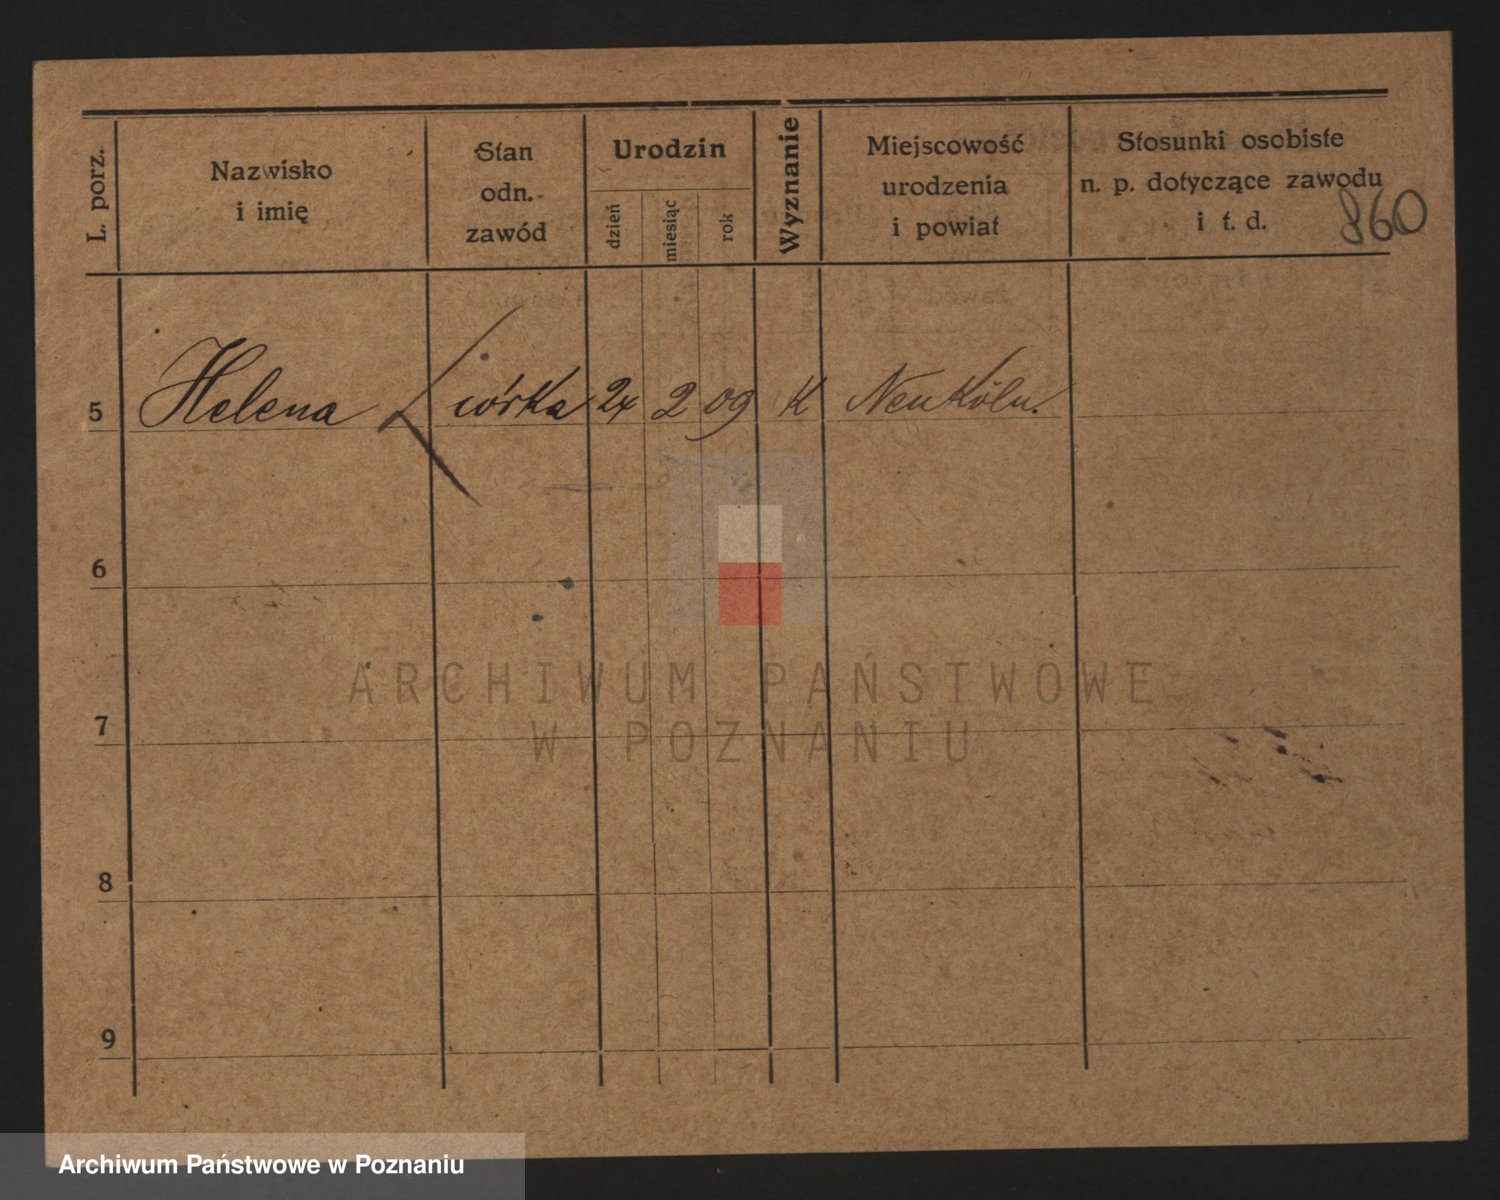 L. porz.
Nazwisko
i imię
Stan
odn.
zawód
Urodzin
dzień
miesiąc
rok
Wyznanie
Miejscowość
urodzenia
i powiat
Stosunki osobiste
n. p. dotyczące zawodu
i t. d.
860
5 Helena córka 24 2 09 K Neukölln.
6
7
8
9
ARCHIWUM PAŃSTWOWE
W POZNANIU
Archiwum Państwowe w Poznaniu